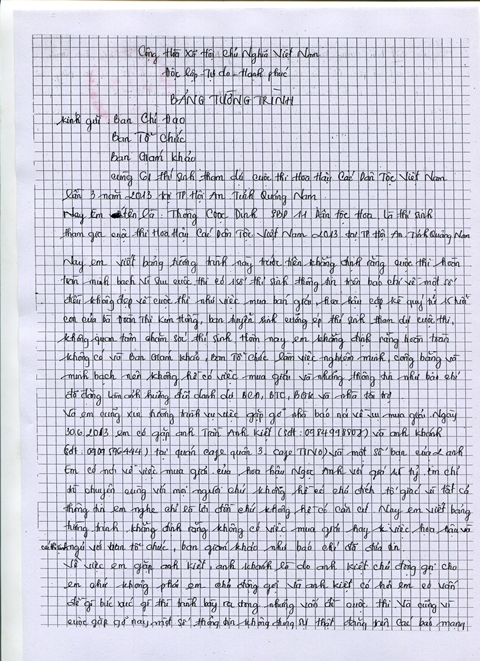 Cộng Hòa Xã Hội Chủ Nghĩa Việt Nam
Độc lập - Tự do - Hạnh phúc
BẢNG TƯỜNG TRÌNH
Kính gửi: Ban Chỉ Đạo
Ban Tổ Chức
Ban Giám Khảo
cùng 61 thí sinh tham dự cuộc thi Hoa Hậu Các Dân Tộc Việt Nam
lần 3 năm 2013 tại TP Hội An Tỉnh Quảng Nam
Nay Em tên là: Thông Cọoc Dính SBD 11 Dân tộc Hoa là thí sinh
tham gia cuộc thi Hoa Hậu Các Dân Tộc Việt Nam 2013 tại TP Hội An Tỉnh Quảng Nam
Nay em viết bảng tường trình này trước tiên khẳng định rằng cuộc thi hoàn
toàn minh bạch Vì sau cuộc thi có 1 số thí sinh thông tin trên báo chí về một số
điều không đẹp về cuộc thi như việc mua bán giải, Hoa hậu cặp kè quý tử 15 tuổi
con của bà Đoàn Thị Kim Hồng, ban tuyển sinh cưỡng ép thí sinh tham dự cuộc thi,
không quan tâm chăm sóc thí sinh Hôm nay em khẳng định rằng hoàn toàn
không có và Ban Giám khảo, Ban Tổ chức làm việc nghiêm minh, công bằng và
minh bạch nên không hề có việc mua giải và những thông tin như báo chí
đã đăng làm ảnh hưởng đến danh dự BCĐ, BTC, BGK và nhà tài trợ
Và em cũng xin tường trình vụ việc gặp gỡ nhà báo nói về vụ mua giải Ngày
30.6.2013 em có gặp anh Trần Anh Kiệt (sđt: 0984998508) và anh Khánh
(sđt: 0909 596444) tại quán cafe quận 3. Cafe TINO) và một số bạn của 2 anh
Em có nói về việc mua giải của hoa hậu Ngọc Anh với giá 1,5 tỷ. Em chỉ
trò chuyện cùng với mọi người chứ không hề có chủ đích tố giác và tất cả
thông tin em nghe chỉ là lời đồn chứ không hề có căn cứ Nay em viết bảng
tường trình, khẳng định rằng không có việc mua giải hay là việc hoa hậu và
với ban tổ chức, ban giám khảo như báo chí đã đưa tin.
Về việc em gặp anh Kiệt, anh Khánh là do anh Kiệt chủ động gọi cho
em chứ không phải em chủ động gọi Và anh Kiệt có hỏi em có vấn
đề gì bức xúc gì thì trình bày ra trong những vấn đề cuộc thi Và cũng vì
cuộc gặp gỡ này, một số thông tin không đúng sự thật đăng trên các báo mạng